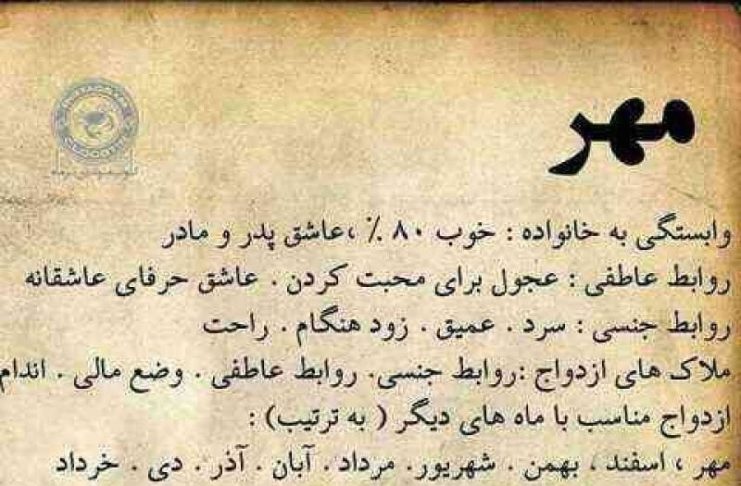 مهر
وابستگی به خانواده : خوب ۸۰ ٪ ،عاشق پدر و مادر
روابط عاطفی : عجول برای محبت کردن . عاشق حرفای عاشقانه
روابط جنسی : سرد . عمیق . زود هنگام . راحت
ملاک های ازدواج :روابط جنسی. روابط عاطفی . وضع مالی . اندام
ازدواج مناسب با ماه های دیگر ( به ترتیب) :
مهر ، اسفند ، بهمن . شهریور. مرداد . آبان . آذر . دی . خرداد